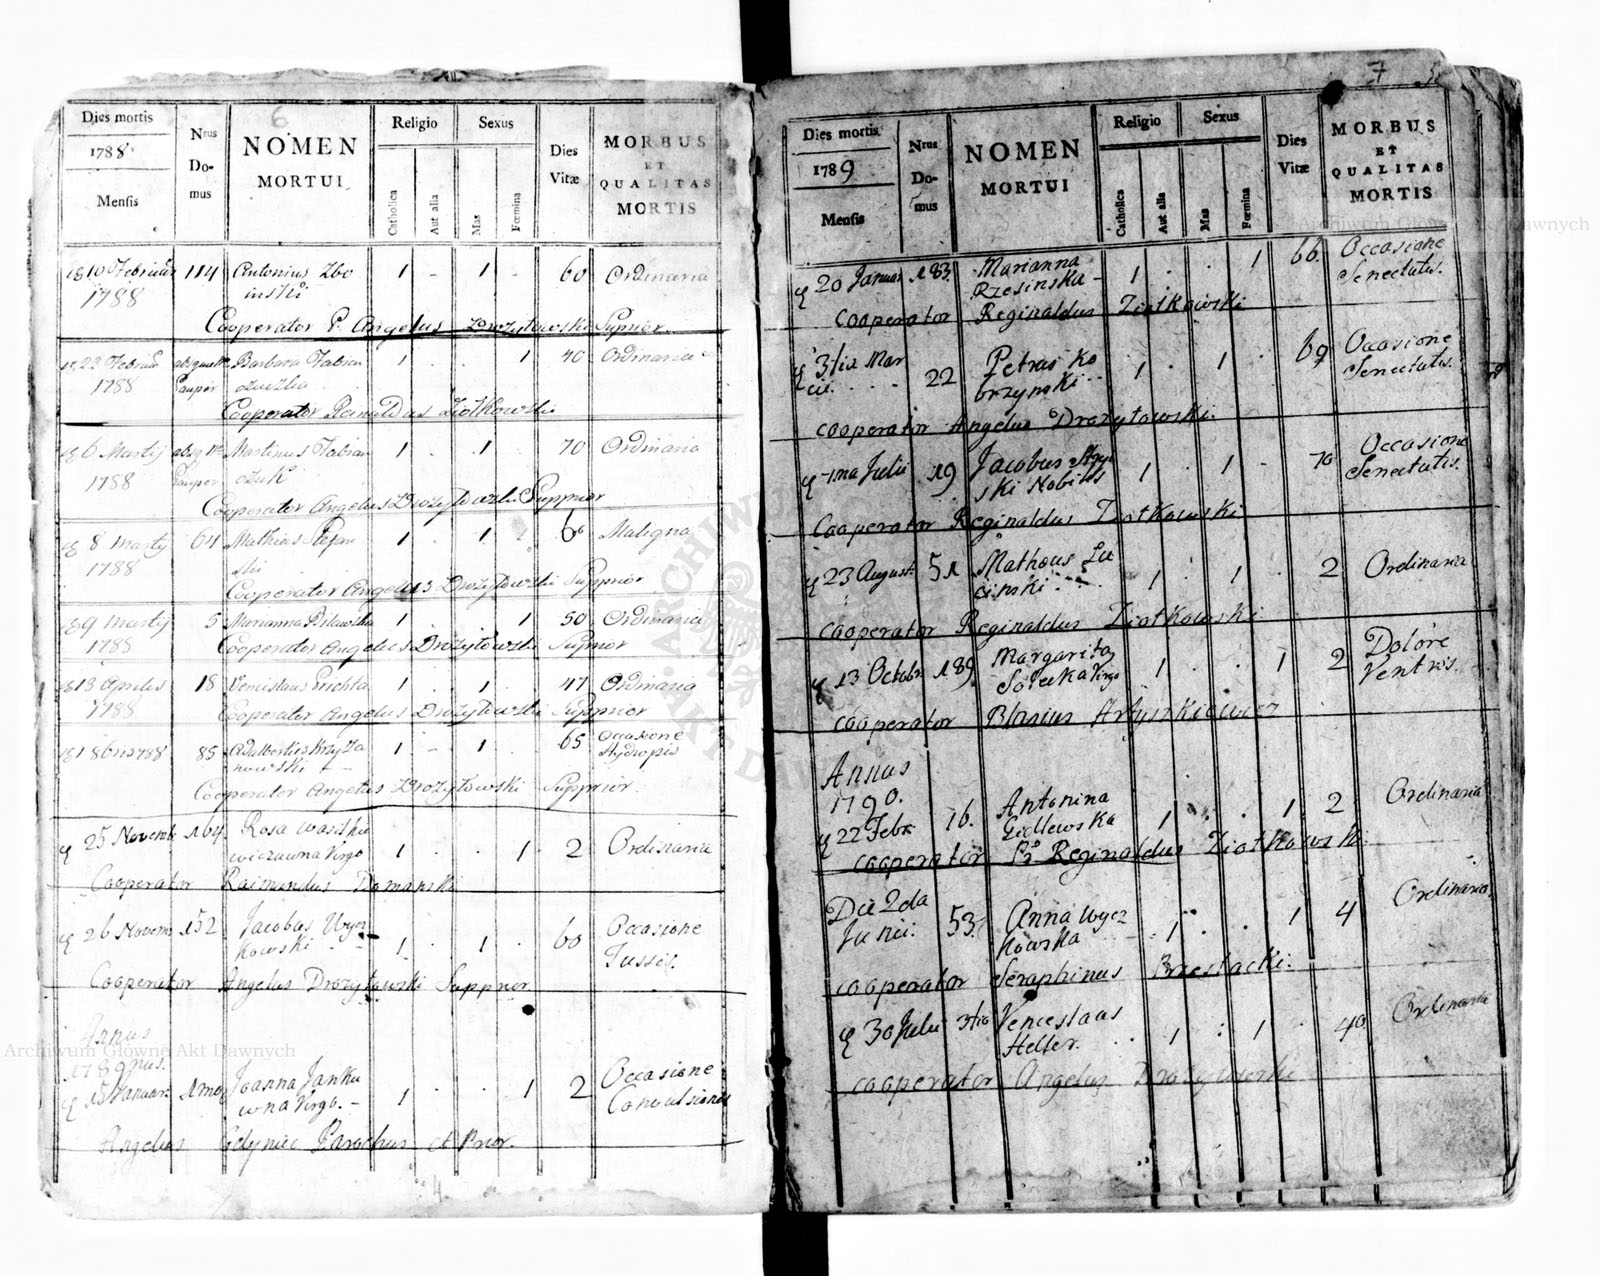 6
Dies mortis
1788
Mensis
Nrus
Do-
mus
NOMEN
MORTUI
Religio
Catholica
Aut alia
Sexus
Mas
Fœmina
Dies
Vitæ
MORBUS
ET
QUALITAS
MORTIS
10 Februar 114 Antonius Zbo 1 - 1 - 60 Ordinaria
1788 inski
Cooperator P. Angelus Drozytowski Supprior
22 Februar Barbara Fabian 1 . . 1 40 Ordinaria
1788 Pauper czuczka
Cooperator Ziotkowski
6 Martij Martinus Fabian 1 . 1 . 70 Ordinaria
1788 Pauper czuk
Cooperator Angelus Drozytowski Supprior
8 Martij 64 Mathias Stefan 1 . 1 . 60 Maligna
1788 ski
Cooperator Angelus Drozytowski Supprior
9 Martij 5 Marianna 1 . . 1 50 Ordinaria
1788 Cooperator Angelus Drozytowski Supprior
13 Aprilis 18 Venceslaus Puchta 1 . 1 . 47 Ordinaria
1788 Cooperator Angelus Drozytowski Supprior
85 Adalbertus Krzyza 1 - 1 . 65 Occasione
nowski Hydropis
Cooperator Angelus Drozytowski Supprior
25 Novemb 164. Rosa Wasilkie
wiczowna Virgo 1 . . 1 2 Ordinaria
Cooperator Raimundus Domanski
26 Novem 152 Jacobus Wycz
kowski 1 . 1 . 60 Occasione
Tussis.
Cooperator Angelus Drozytowski Supprior
Annus
1789nus.
15 Januar. 1mo Joanna Janko
wna Virgo. - 1 . . 1 2 Occasione
Convulsionis
Angelus Gdyniec Parochus et Prior.
7
Dies mortis
1789
Mensis
Nrus
Do-
mus
NOMEN
MORTUI
Religio
Catholica
Aut alia
Sexus
Mas
Fœmina
Dies
Vitæ
MORBUS
ET
QUALITAS
MORTIS
20 Januar 183. Marianna
Rzesinska - 1 . . 1 66. Occasione
Senectutis.
Cooperator Reginaldus Ziotkowski
31tia Mar
cii. 22 Petrus Ko
brzynski 1 . 1 . 69 Occasione
Senectutis.
cooperator Angelus Drozytowski.
1ma Julii 19 Jacobus
ski Nobilis 1 . 1 . 70 Occasione
Senectutis.
Cooperator Reginaldus Ziotkowski
23 August. 51 Matheus Lu
cinski. 1 . 1 . 2 Ordinaria
cooperator Reginaldus Ziotkowski.
13 Octobr 189. Margarita
Virgo 1 . . 1 2 Dolore
Ventris.
cooperator Blasius Artyszkiewicz
Annus
1790.
22 Febr 16. Antonina
Godlewska 1 . . 1 2 Ordinaria
cooperator Pr Reginaldus Ziotkowski.
Die 2da
Junii. 53. Anna Wycz
kowska 1 . . 1 4 Ordinaria
cooperator Seraphinus Brzestacki.
30 Julii 3tio Venceslaus
Helfer. 1 : 1 . 40 Ordinaria
cooperator Angelus Drozytowski
4
Archiwum Główne Akt Dawnych
Archiwum Główne Akt Dawnych